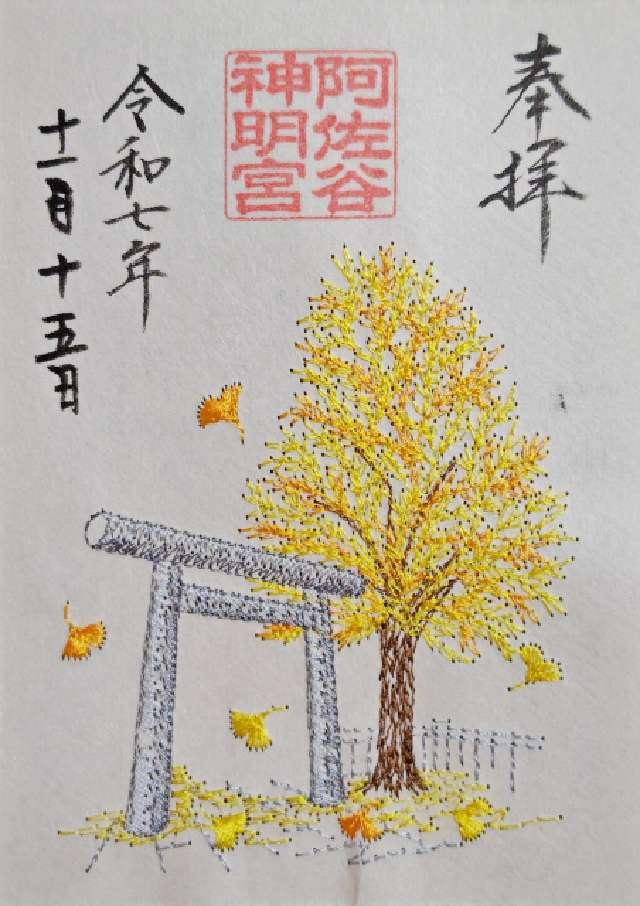 奉拝
阿佐谷
神明宮
令和七年
十一月十五日